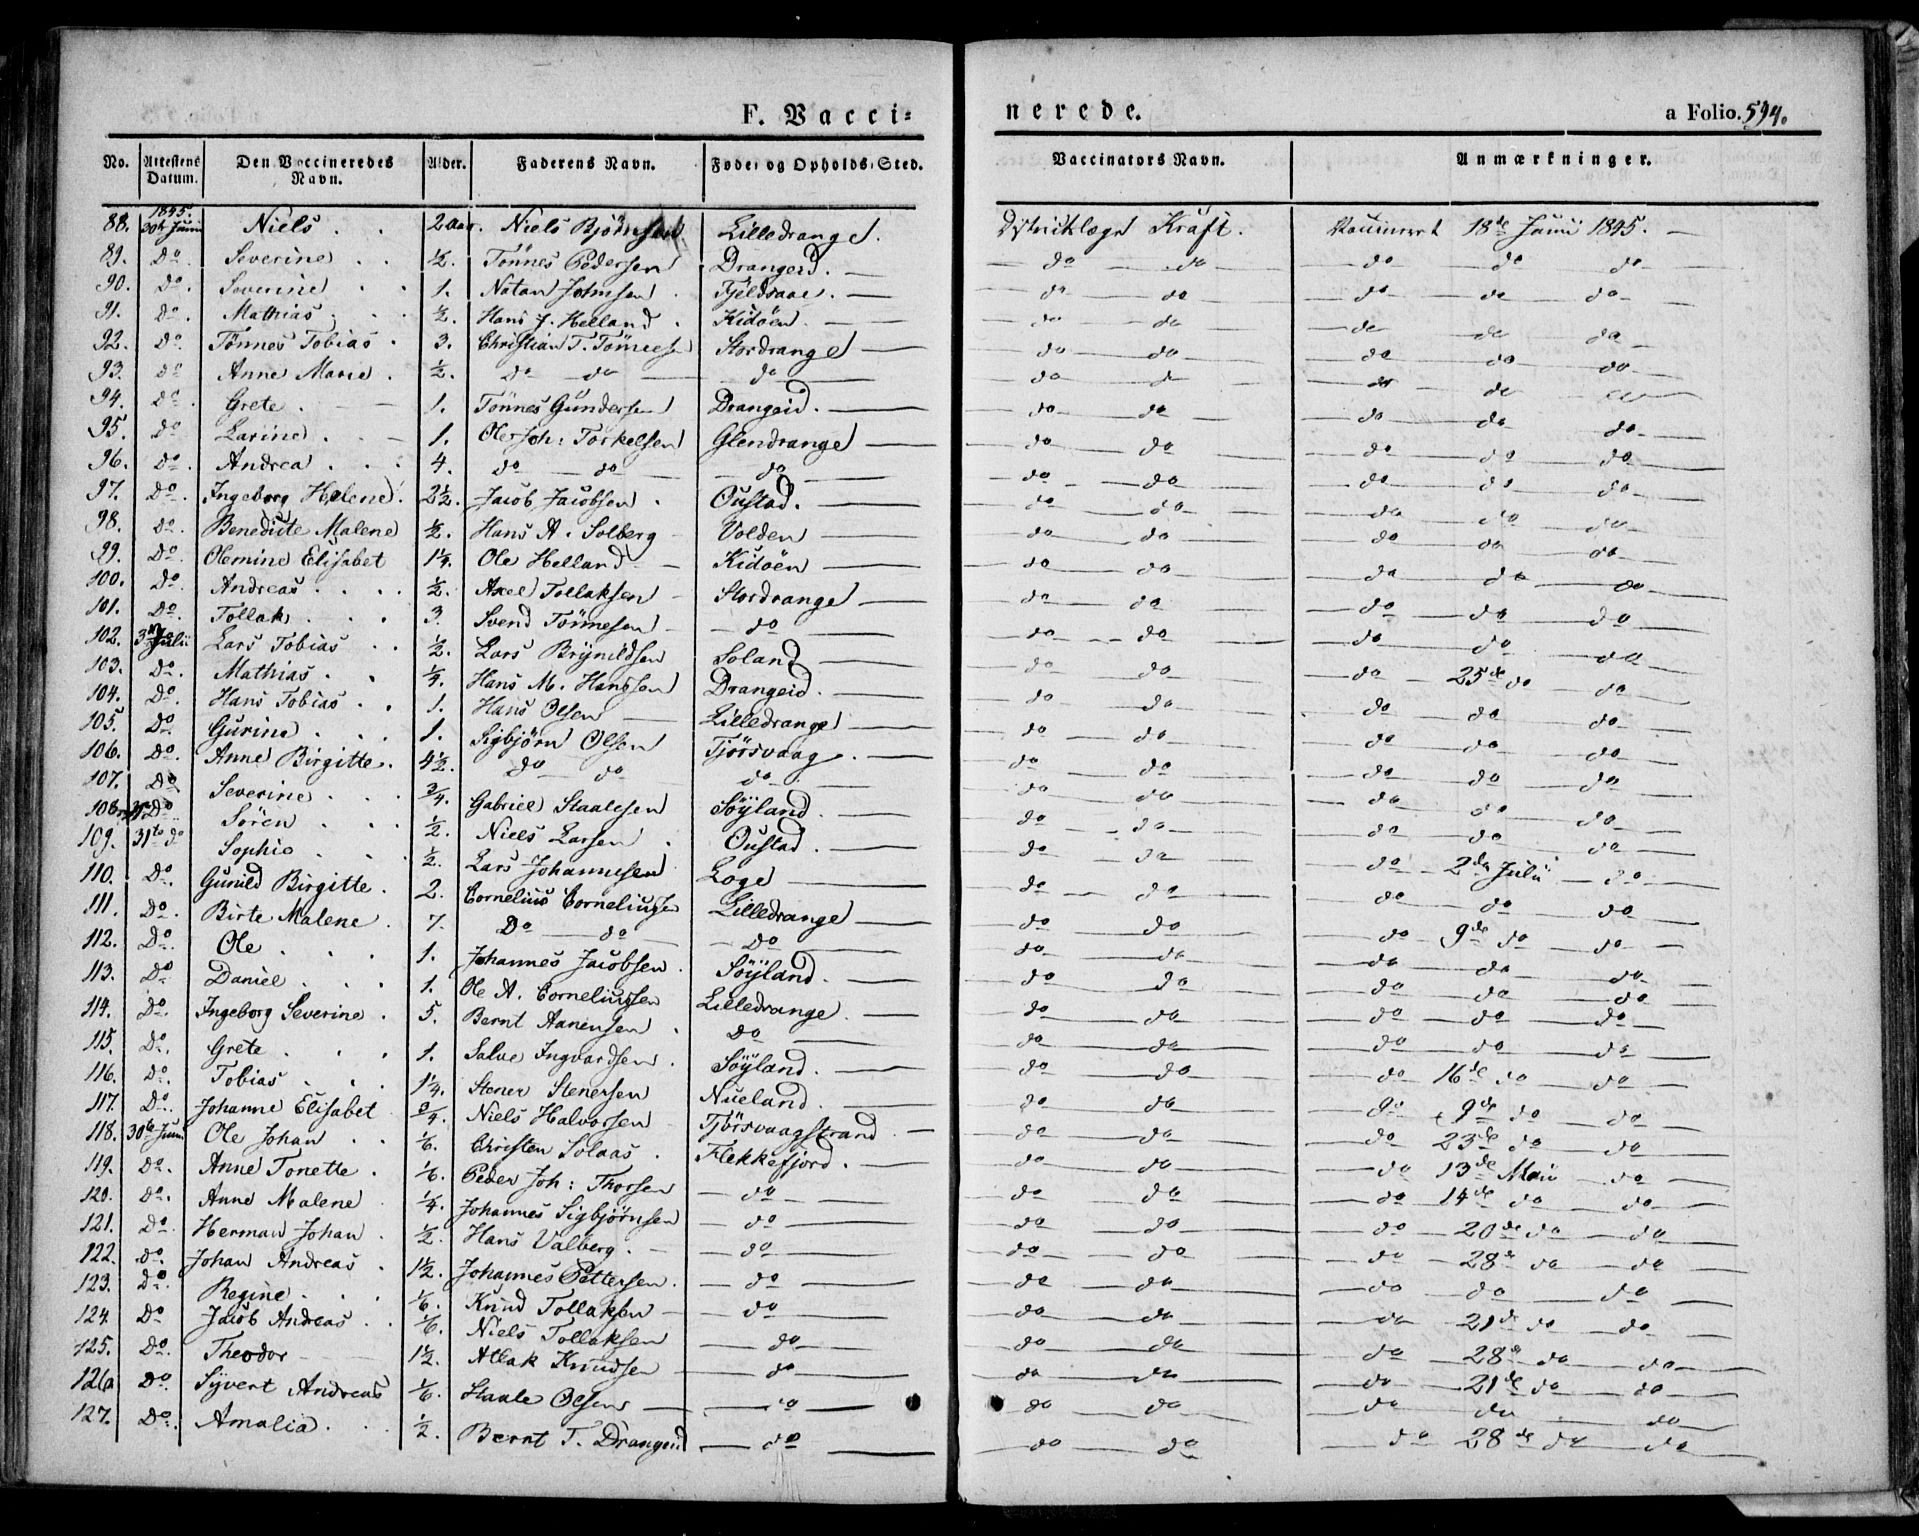 F. Vacci-
nerede.
a Folio. 594.
No. Attestens Datum. Den Vaccineredes Navn. Alder. Faderens Navn. Føde- og Opholds-Sted. Vaccinators Navn. Anmærkninger.
88. 1845. 30te Junii Niels 2 aar. Niels Björnsen Lilledrange. Districtlæge Kraft. Vaccineret 18de Junii 1845.
89. Do Severine ½. Tönnes Pedersen Drangeid. do do do do do
90. Do. Severine 1. Natan Johnsen Fjeldsaae. do do do do do
91. Do. Mathias ½. Hans J. Helland Kidöen. do do do do do
92. Do. Tönnes Tobias 3. Christian T. Tönnesen Stordrange do do do do do
93. do Anne Marie ½. Do do do do do do do
94. Do. Grete 1. Tönnes Gundersen Drangeid. do do do do do
95. Do Larine 1. Ole Joh: Torkelsen Glendrange do do do do do
96. Do. Andrea 4. do do do do do do do do
97. Do. Ingeborg Helene 2½. Jacob Jacobsen Oustad. do do do do do
98. Do. Benedicte Malene ½. Hans A. Solberg Volden do do do do do
99. Do. Olemine Elisabet 1¼. Ole Helland Kidöen do do do do do
100. Do Andreas ½. Axel Tollaksen Stordrange do do do do do
101. Do. Tollak 3. Svend Tönnesen do do do do do do
102. Julii Lars Tobias ½. Lars Brynildsen Soland do do do do do
103. Do. Mathias ¼. Hans M. Hanssen Drangeid. do do do 25de do do
104. Do. Hans Tobias 1. Hans Olsen Lilledrange do do do do do
105. Do Gurine 1. Sigbjörn Olsen Tjörsvaag. do do do do do
106. Do. Anne Birgitte 4½. Do do do do do do do do
107. Do Severine ¾. Gabriel Staalesen Söyland. do do do do do
108. Do Sören ½. Niels Larsen Oustad. do do do do do
109. 31te do Sophie ½. Lars Johannesen Loge do do do 2de Julii do
110. Do. Gunild Birgitte 2. Cornelius Corneliussen Lilledrange do do do do do
111. Do. Birte Malene 7. Do do Do do do do 9de do do
112. Do. Ole 1. Johannes Jacobsen Söyland. do do do do do
113. Do Daniel 1. Ole A. Corneliussen Lilledrange. do do do do do
114. Do Ingeborg Severine 5. Bernt Aanensen Do do do do do do
115. Do. Grete 1. Salve Ingvardsen Söyland. do do do do do
116. Do. Tobias 1¼. Stener Stenersen Nueland. do do do 16de do do
117. Do. Johanne Elisabet ¾. Niels Halvorsen Tjörsvaagstrand do do do 9de do do
118. 30te Junii Ole Johan ⅙. Christen Solaas Flekkefjord. do do do 23de do do
119. Do. Anne Tonette ⅙. Peder Joh: Thorsen do do do do 13de Maii do
120. Do. Anne Malene ¼. Johannes Sigbjörnsen do do do do 14de do do
121. Do. Herman Johan ½. Hans Valberg. do do do do 20de do do
122. Do. Johan Andreas 1½. Johannes Pettersen do do do do 28de do do
123. Do. Regine ⅙. Knud Tollaksen do do do do do do
124. Do Jacob Andreas ⅙. Niels Tollaksen do do do do 21de do do
125. Do. Theodor 1½. Atlak Knudsen do do do do 28de do do
126 Do. Syvert Andreas ⅙. Staale Olsen do do do do 21de do do
127. Do. Amalia ½. Bernt T. Drangeid do do do do 28de do do